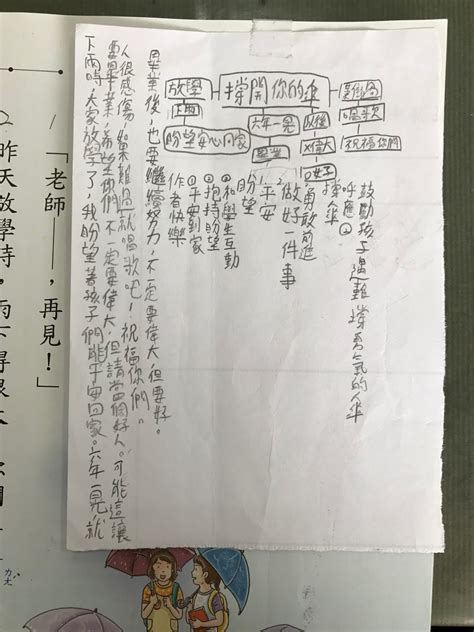 撐開你的傘
放學
下雨
盼望安心回家
六年一晃
畢業
以後
難過
唱歌
祝福你們
鼓勵孩子遇難撐勇氣的傘
呼應
撐傘
勇敢前進
做好一件事
平安
盼望
和學生互動
抱持盼望
平安到家
作者快樂
畢業後,也要繼續努力,不一定要偉大,但要好。
人很感傷,如果難過就唱歌吧,祝福你們。
要畢業,希望你們不一定要偉大,但請當個好人。可能這讓
下雨時,大家放學了,我盼望著孩子們能平安回家。六年一晃就
「老師——,再見!」
昨天放學時,雨下得很大